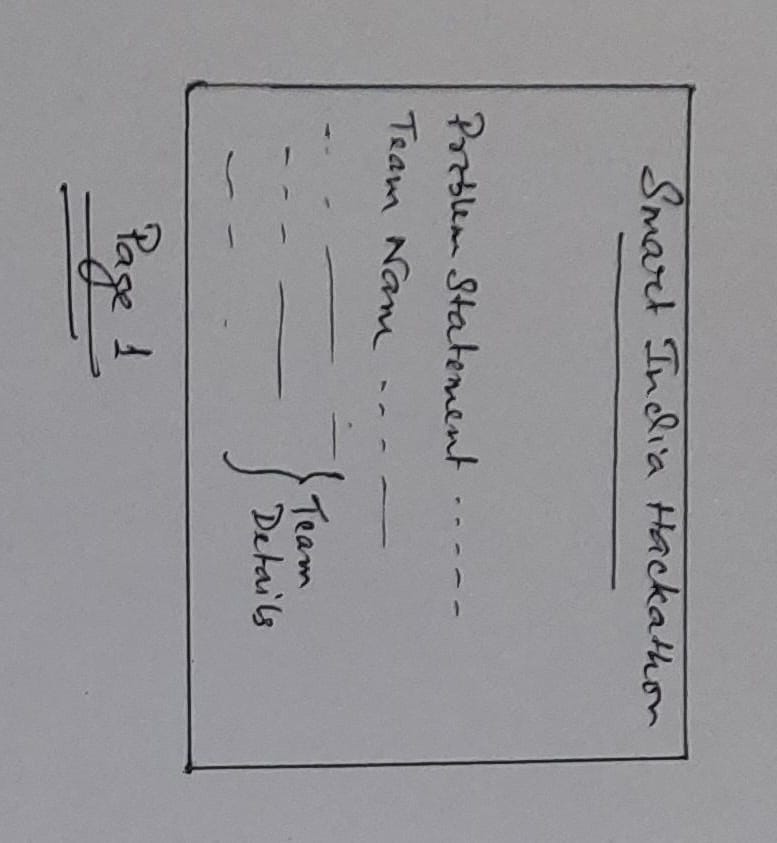 Smart India Hackathon
Problem Statement . . . - - -
Team Nam - - - —
Team
Details
Page 1